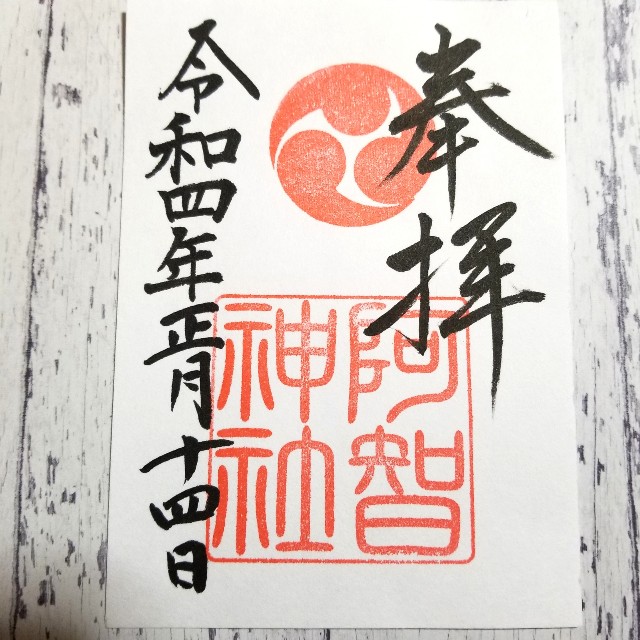 奉拝
阿智
神社
令和四年正月十四日